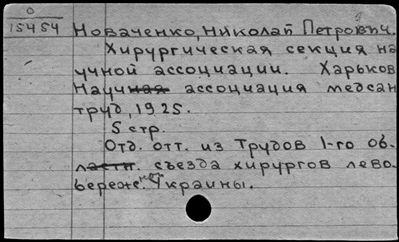 0
15454
Новаченко, Николай Петрович.
Хирургическая секция на
учной ассоциации. Харьков
Научная ассоциация медсан
труд, 1925.
5 стр.
Отд. отт. из Трудов 1-го об
ластн. съезда хирургов лево
бережн. Украины.